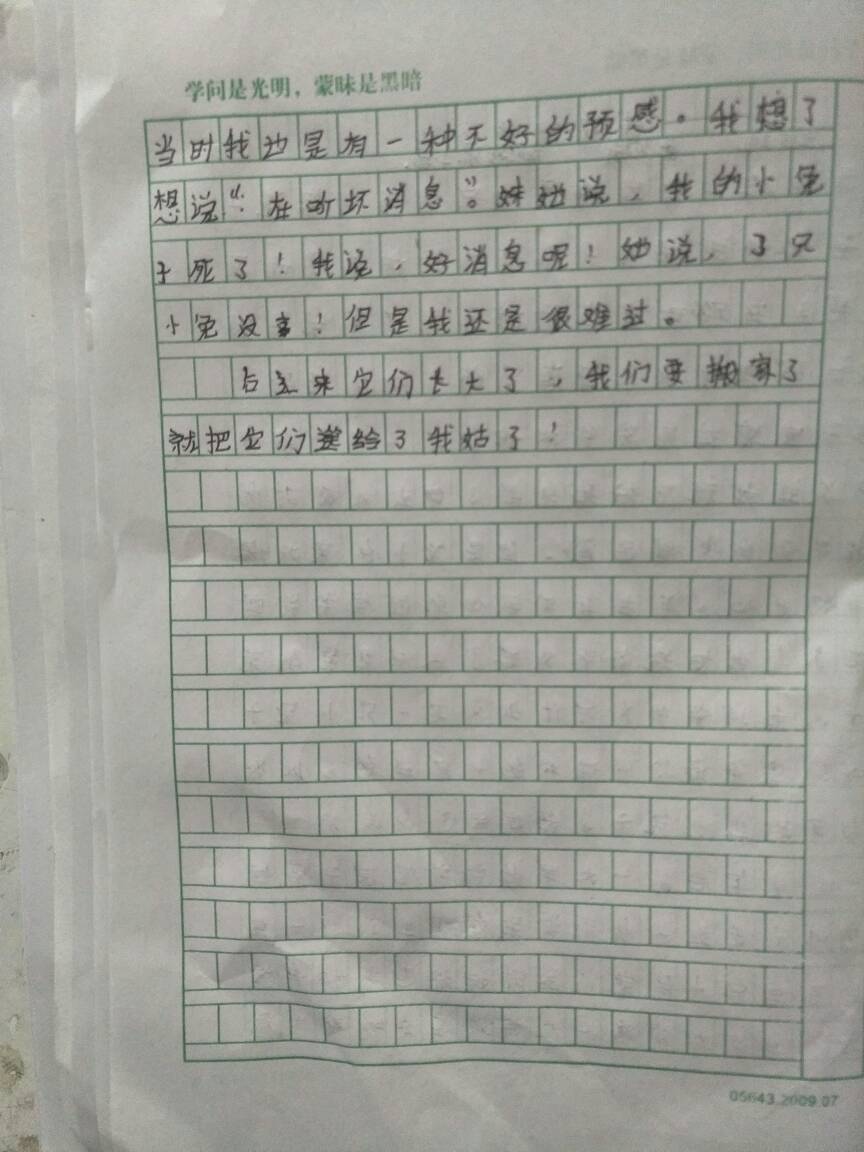 学问是光明，蒙昧是黑暗
当时我也是有一种不好的预感。我想了
想说“：在听坏消息”。妹她说，我的小兔
子死了！我说，好消息呢！她说，了只
小兔没事！但是我还是很难过。
后来它们长大了，我们要搬家了
就把它们送给了我姑了！
05643.2009.07